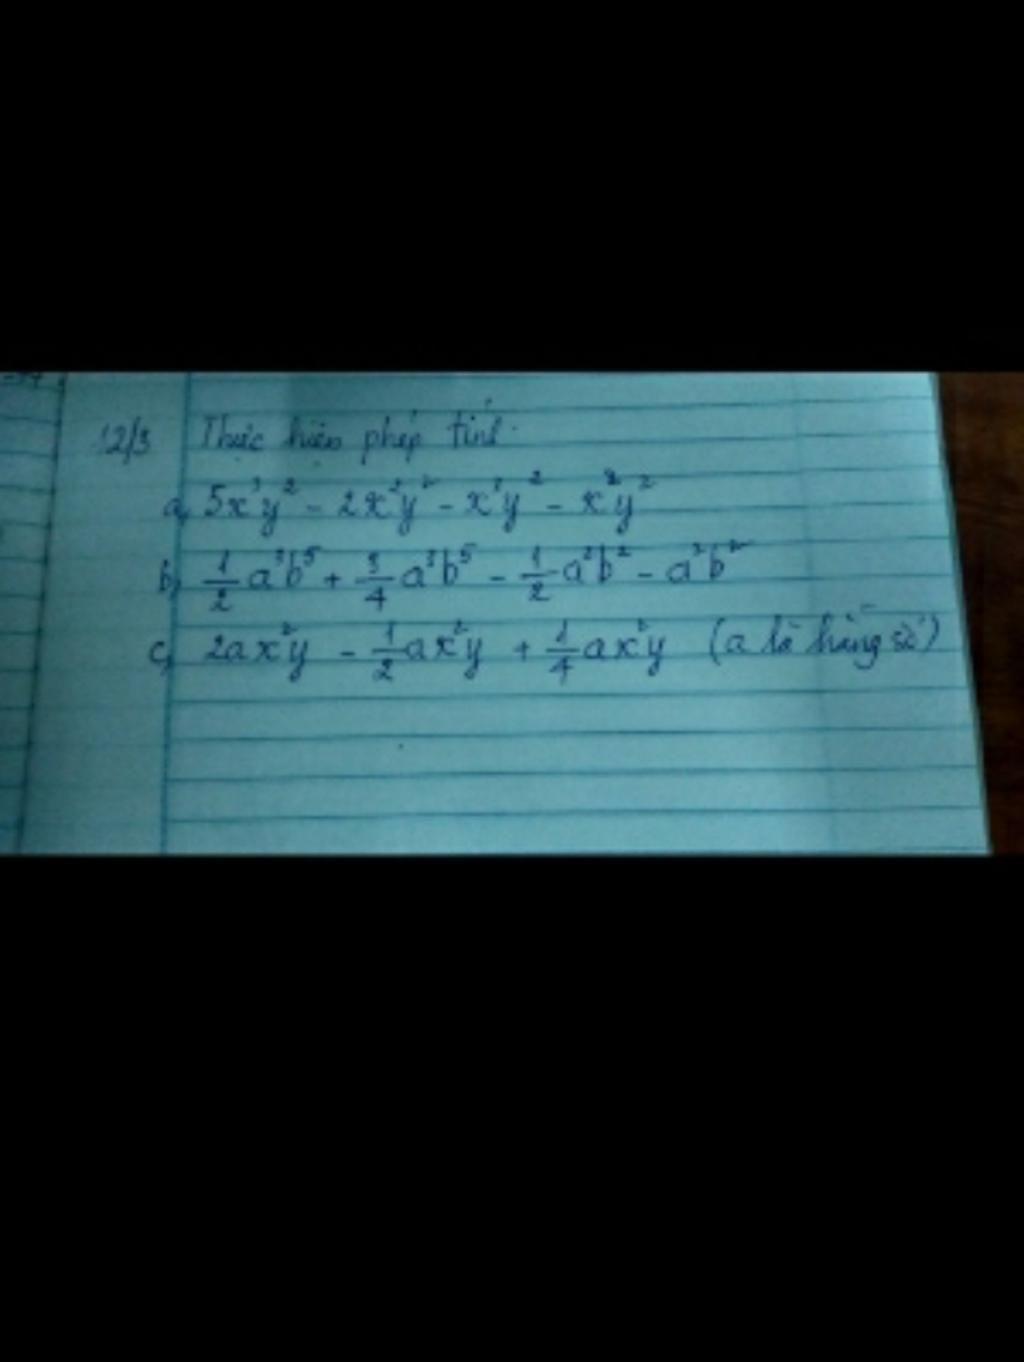 12/3 Thực hiện phép tính.
a, 5x³y² - 2x²y² - x³y² - x²y²
b, 1/2 a³b⁵ + 3/4 a³b⁵ - 1/2 a²b² - a²b²
c, 2ax²y - 1/2 ax²y + 1/4 ax²y (a là hằng số)